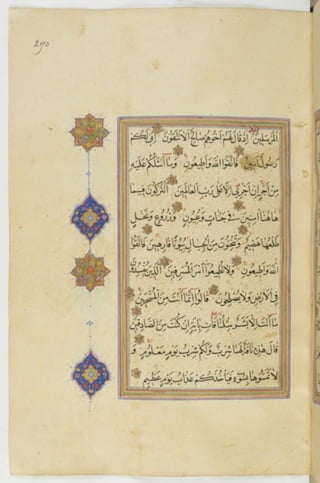 المرسلين اذ قال لهم اخوهم صالح الا تتقون اني لكم
رسول امين فاتقوا الله واطيعون وما اسئلكم عليه
من اجر ان اجري الا على رب العالمين اتتركون فيما
هاهنا امنين في جنات وعيون وزروع ونخل
طلعها هضيم وتنحتون من الجبال بيوتا فارهين فاتقوا
الله واطيعون ولا تطيعوا امر المسرفين الذين يفسدون
في الارض ولا يصلحون قالوا انما انت من المسحرين
ما انت الا بشر مثلنا فات باية ان كنت من الصادقين
قال هذه ناقة لها شرب ولكم شرب يوم معلوم و
لا تمسوها بسوء فياخذكم عذاب يوم عظيم